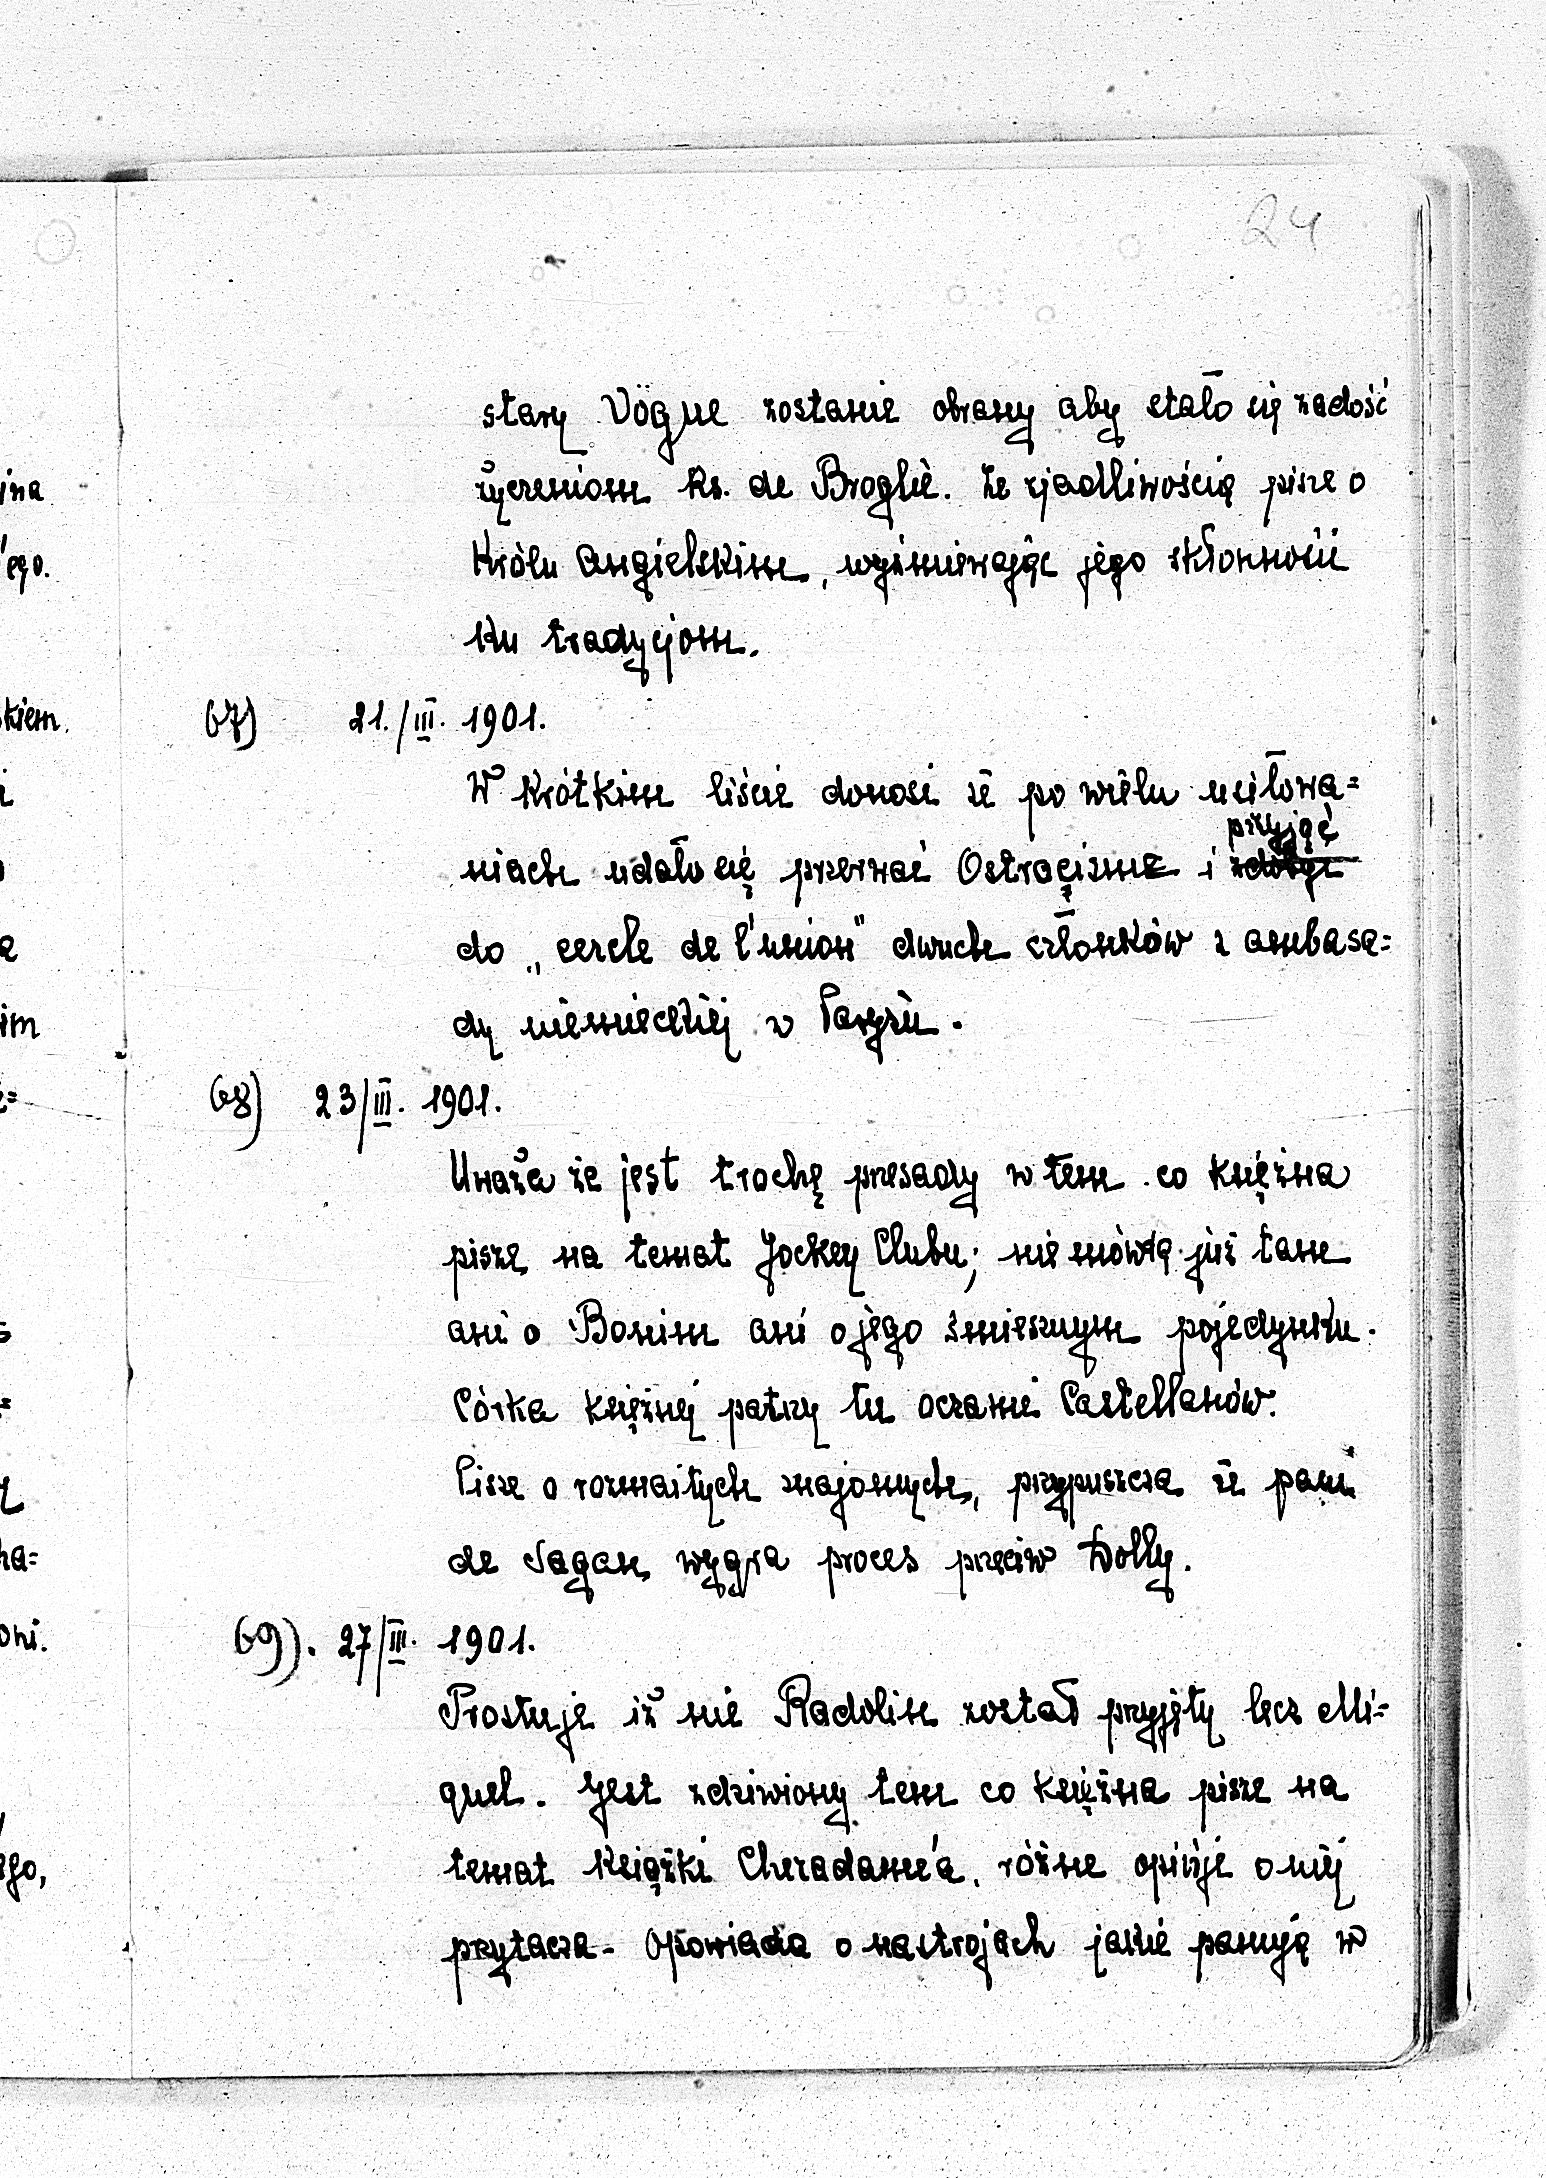 24
stary Vögue zostanie obrany aby stało się zadość
życzeniom ks. de Broglie. Ze zjadliwością pisze o
Królu Angielskim, wyśmiewając jego skłonności
ku tradycjom.
67) 21./III. 1901.
W krótkim liście donosi że po wielu usiłowa=
przyjąć
niach udało się przerwać Ostracizm i
do „cercle de l'union" dwuch członków z ambasa=
dy niemieckiej w Paryżu.
68) 23/III. 1901.
Uważa że jest trochę przesady w tem co księżna
pisze na temat Jockey Clubu; nie mówią już tam
ani o Bonim ani o jego śmiesznym pojedynku.
Córka księżnej patrzy tu oczami Castellanów.
Pisze o rozmaitych znajomych, przypuszcza że pani
de Sagan wygra proces przeciw Dolly.
69). 27/III. 1901.
Prostuje iż nie Radolin został przyjęty lecz Mi=
quel. Jest zdziwiony tem co księżna pisze na
temat książki Cheradame'a, różne opinje o niej
przytacza. Opowiada o nastrojach jakie panują w
ina
ego.
skiem.
im
oni.
ego,